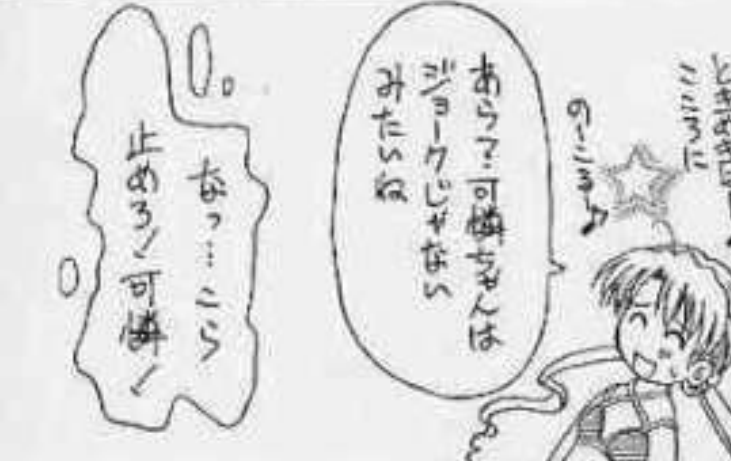 こころに
の〜こる〜♪
あら?可憐ちゃんは
ジョークじゃない
みたいね
なっ…こら
止めろ!可憐!